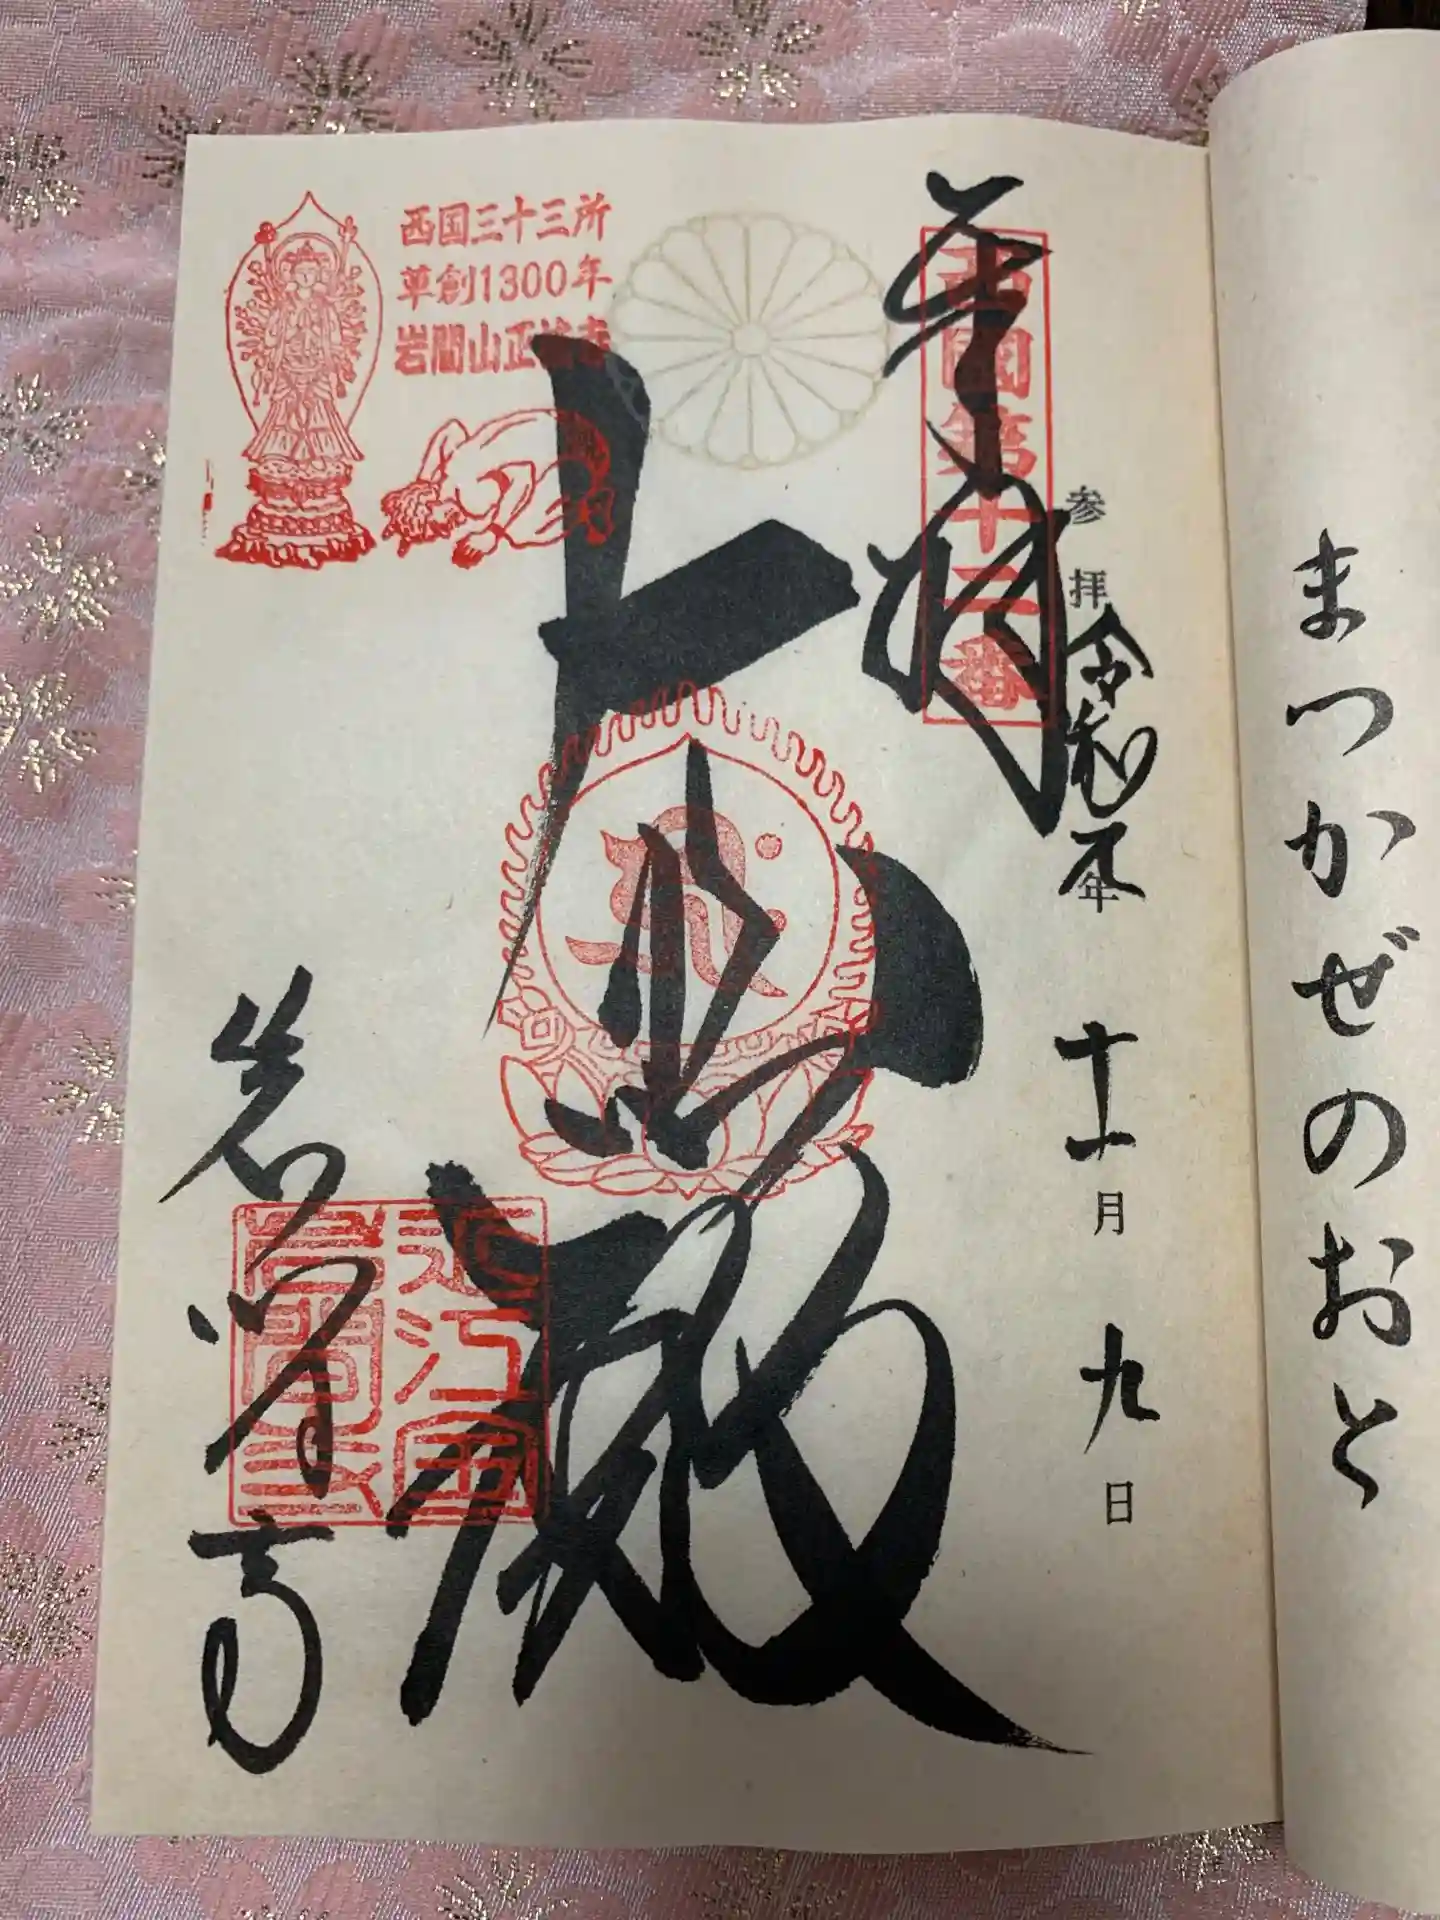 まつかぜのおと
奉拝
西國第十二番
参拝 令和元年 十一月 九日
大悲殿
西国三十三所
草創1300年
岩間山正法寺
岩間寺
近江国